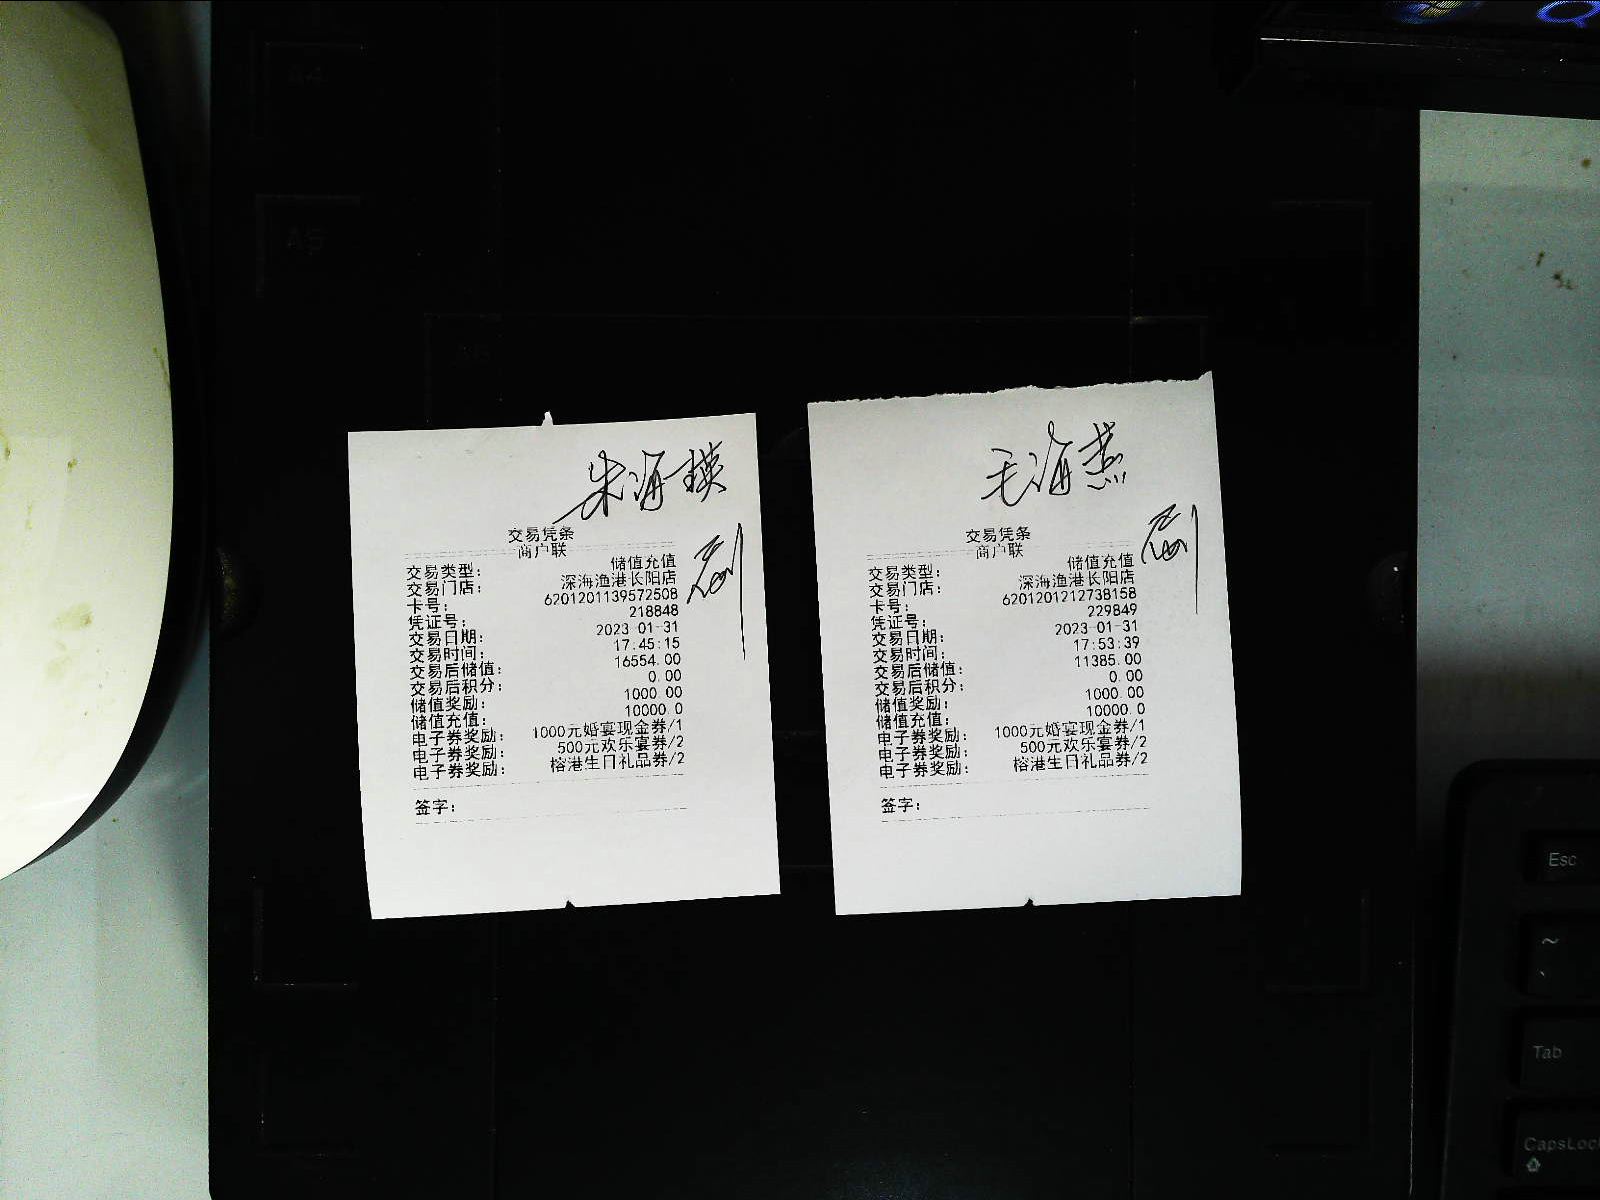 A4
A5
朱海瑛
交易凭条
商户联
交易类型: 储值充值
交易门店: 深海渔港长阳店
卡号: 6201201139572508
凭证号: 218848
交易日期: 2023-01-31
交易时间: 17:45:15
交易后储值: 16554.00
交易后积分: 0.00
储值奖励: 1000.00
储值充值: 10000.0
电子券奖励: 1000元婚宴现金券/1
电子券奖励: 500元欢乐宴券/2
电子券奖励: 榕港生日礼品券/2
签字:
毛海燕
交易凭条
商户联
交易类型: 储值充值
交易门店: 深海渔港长阳店
卡号: 6201201212738158
凭证号: 229849
交易日期: 2023-01-31
交易时间: 17:53:39
交易后储值: 11385.00
交易后积分: 0.00
储值奖励: 1000.00
储值充值: 10000.0
电子券奖励: 1000元婚宴现金券/1
电子券奖励: 500元欢乐宴券/2
电子券奖励: 榕港生日礼品券/2
签字:
Esc
~
Tab
CapsLoc